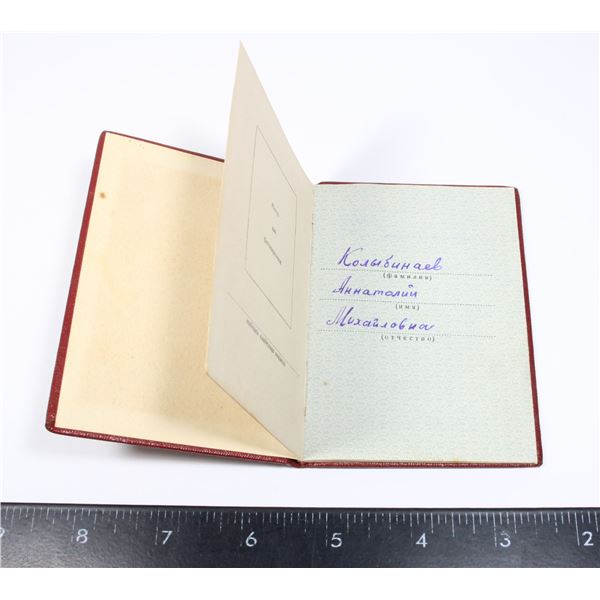 Колыбинаев
(фамилия)
Аннаталий
(имя)
Михайловна
(отчество)
9 8 7 6 5 4 3 2